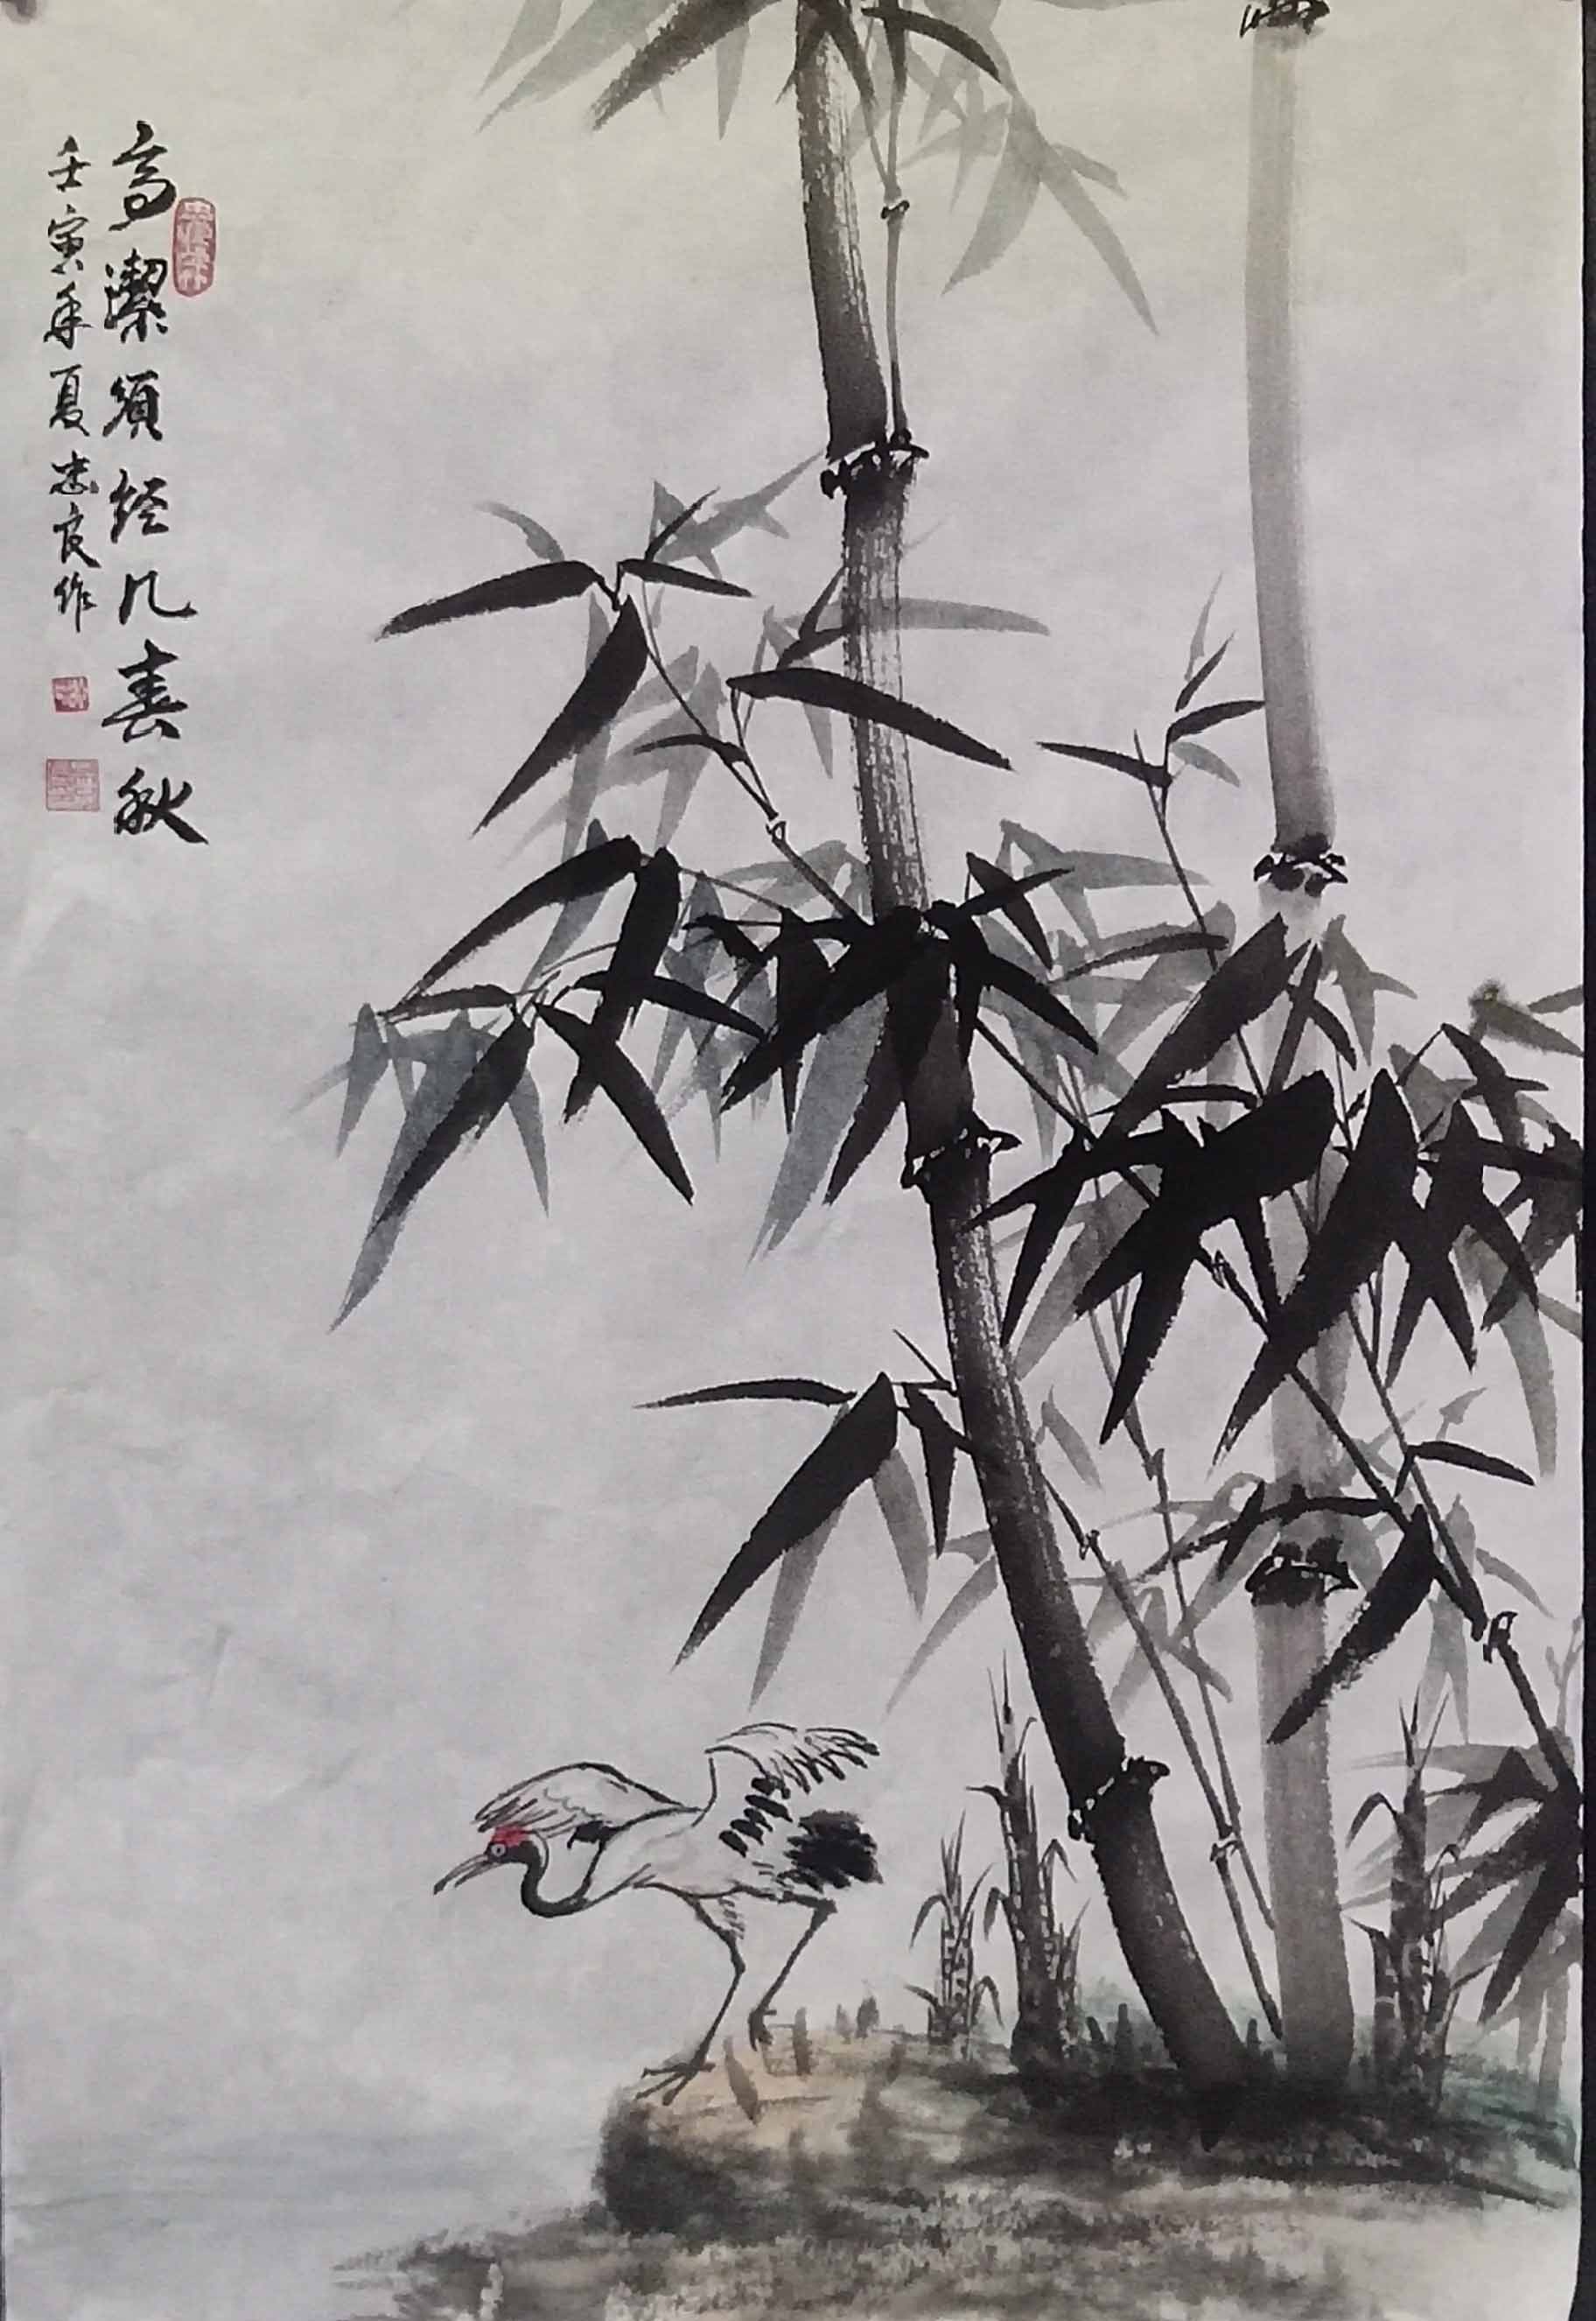 高潔須经几春秋
壬寅年夏忠良作